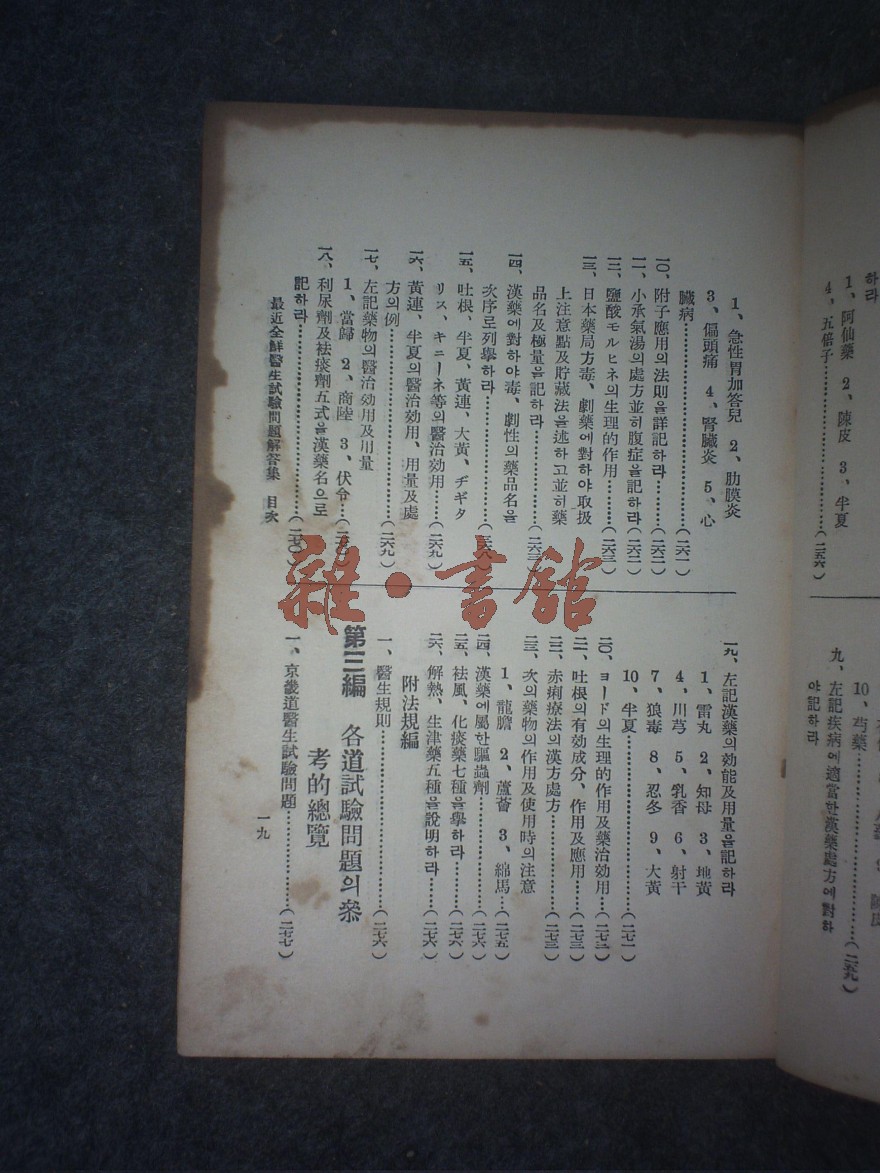 하라
1、阿仙藥 2、陳皮 3、半夏
4、五倍子…………(二五六)
九、左記疾病에適當한漢藥處方에對하
야記하라
1、急性胃加答兒 2、肋膜炎
3、偏頭痛 4、腎臟炎 5、心
臟病…………(二六一)
一〇、附子應用의法則을詳記하라……(二六二)
一一、小承氣湯의處方並히腹症을記하라(二六二)
一二、鹽酸モルヒネ의生理的作用……(二六三)
一三、日本藥局方毒、劇藥에對하야取扱
上注意點及貯藏法을述하고並히藥
品名及極量을記하라…………(二六三)
一四、漢藥에對하야毒、劇性의藥品名을
次序로列擧하라…………(二六八)
一五、吐根、半夏、黃連、大黃、ヂギタ
リス、キニーネ等의醫治効用…(二六九)
一六、黃連、半夏의醫治効用、用量及處
方의例…………(二六九)
一七、左記藥物의醫治効用及用量
1、當歸 2、商陸 3、伏令…
一八、利尿劑及袪痰劑五式을漢藥名으로
記하라…………(二七〇)
最近全鮮醫生試驗問題解答集 目次
一九、左記漢藥의効能及用量을記하라
1、雷丸 2、知母 3、地黃
4、川芎 5、乳香 6、射干
7、狼毒 8、忍冬 9、大黃
10、半夏…………(二七一)
二〇、ヨード의生理的作用及藥治効用…(二七二)
二一、吐根의有効成分、作用及應用……(二七三)
二二、赤痢療法의漢方處方…………(二七三)
二三、次의藥物의作用及使用時의注意
1、龍膽 2、蘆薈 3、綿馬…(二七五)
二四、漢藥에屬한驅蟲劑…………(二七六)
二五、袪風、化痰藥七種을擧하라……(二七六)
二六、解熱、生津藥五種을說明하라……(二七六)
附法規編
一、醫生規則…………(二七六)
第三編 各道試驗問題의參
考的總覽
一、京畿道醫生試驗問題…………(二七七)
一九
10、芍藥…………(二五九)
雜·書館